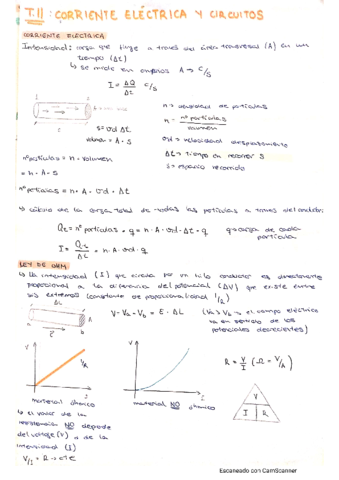 T.11: CORRIENTE ELÉCTRICA Y CIRCUITOS
CORRIENTE ELÉCTRICA
Intensidad: carga que fluye a través del área transversal (A) en un
tiempo (Δt)
↳ se mide en amperios A → C/s
I = ΔQ/Δt C/s
n → densidad de partículas
n = nº partículas / volumen
s = vd Δt
volumen = A · s
vd → velocidad desplazamiento
Δt → tiempo en recorrer s
s → espacio recorrido
nº partículas = n · volumen
= n · A · s
nº partículas = n · A · vd · Δt
↳ cálculo de la carga total de todas las partículas a través del conductor:
Qt = nº partículas · q = n · A · vd · Δt · q
q → carga de cada
partícula
I = Qt/Δt = n · A · vd · q
LEY DE OHM
↳ La intensidad (I) que circula por un hilo conductor es directamente
proporcional a la diferencia del potencial (ΔV) que existe entre
sus extremos (constante de proporcionalidad 1/R)
ΔL
A
V = Va - Vb = E · ΔL
(Va > Vb → el campo eléctrico
va en sentido de los
potenciales decrecientes)
V
I
V
I
R = V/I (Ω = V/A)
V
I R
material óhmico
material NO óhmico
↳ el valor de la
resistencia NO depende
del voltaje (V) o de la
intensidad (I)
V/I = R → cte
Escaneado con CamScanner